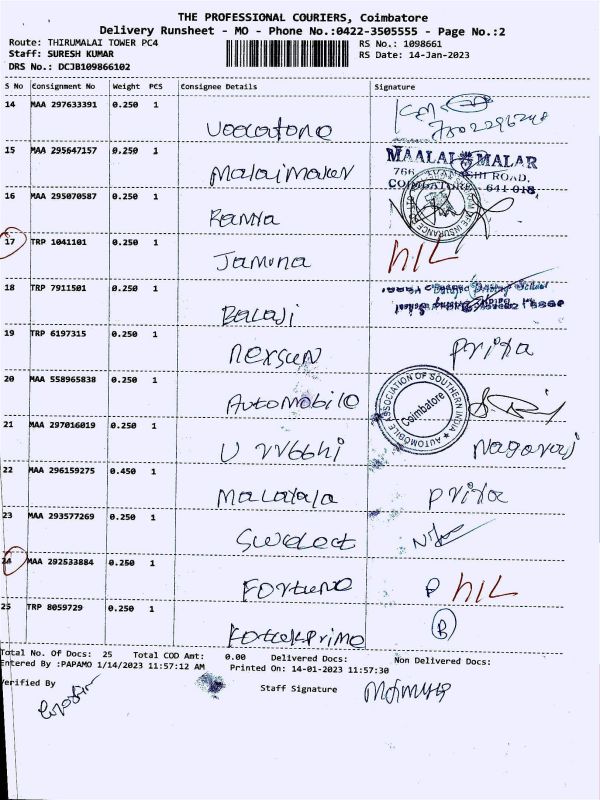 THE PROFESSIONAL COURIERS, Coimbatore
Delivery Runsheet - MO - Phone No.:0422-3505555 - Page No.:2
Route: THIRUMALAI TOWER PC4 RS No.: 1098661
Staff: SURESH KUMAR RS Date: 14-Jan-2023
DRS No.: DCJB109866102
S No Consignment No Weight PCS Consignee Details Signature
14 MAA 297633391 0.250 1
15 MAA 295647157 0.250 1 Malaimaker MAALAI MALAR
766, ROAD,
COIMBATORE - 641 018.
16 MAA 295070587 0.250 1 Ramya
17 TRP 1041101 0.250 1 Jamuna NIL
18 TRP 7911501 0.250 1 Balaji
19 TRP 6197315 0.250 1 nexsun Priya
20 MAA 558965838 0.250 1 Automobile AUTOMOBILE ASSOCIATION OF SOUTHERN INDIA Coimbatore
21 MAA 297016019 0.250 1 Nagaraj
22 MAA 296159275 0.450 1 Malayala Priya
23 MAA 293577269 0.250 1 Swelect
24 MAA 292533884 0.250 1 Fortune P NIL
25 TRP 8059729 0.250 1 Kotakprime B
Total No. Of Docs: 25 Total COD Amt: 0.00 Delivered Docs: Non Delivered Docs:
Entered By :PAPAMO 1/14/2023 11:57:12 AM Printed On: 14-01-2023 11:57:30
Verified By Staff Signature